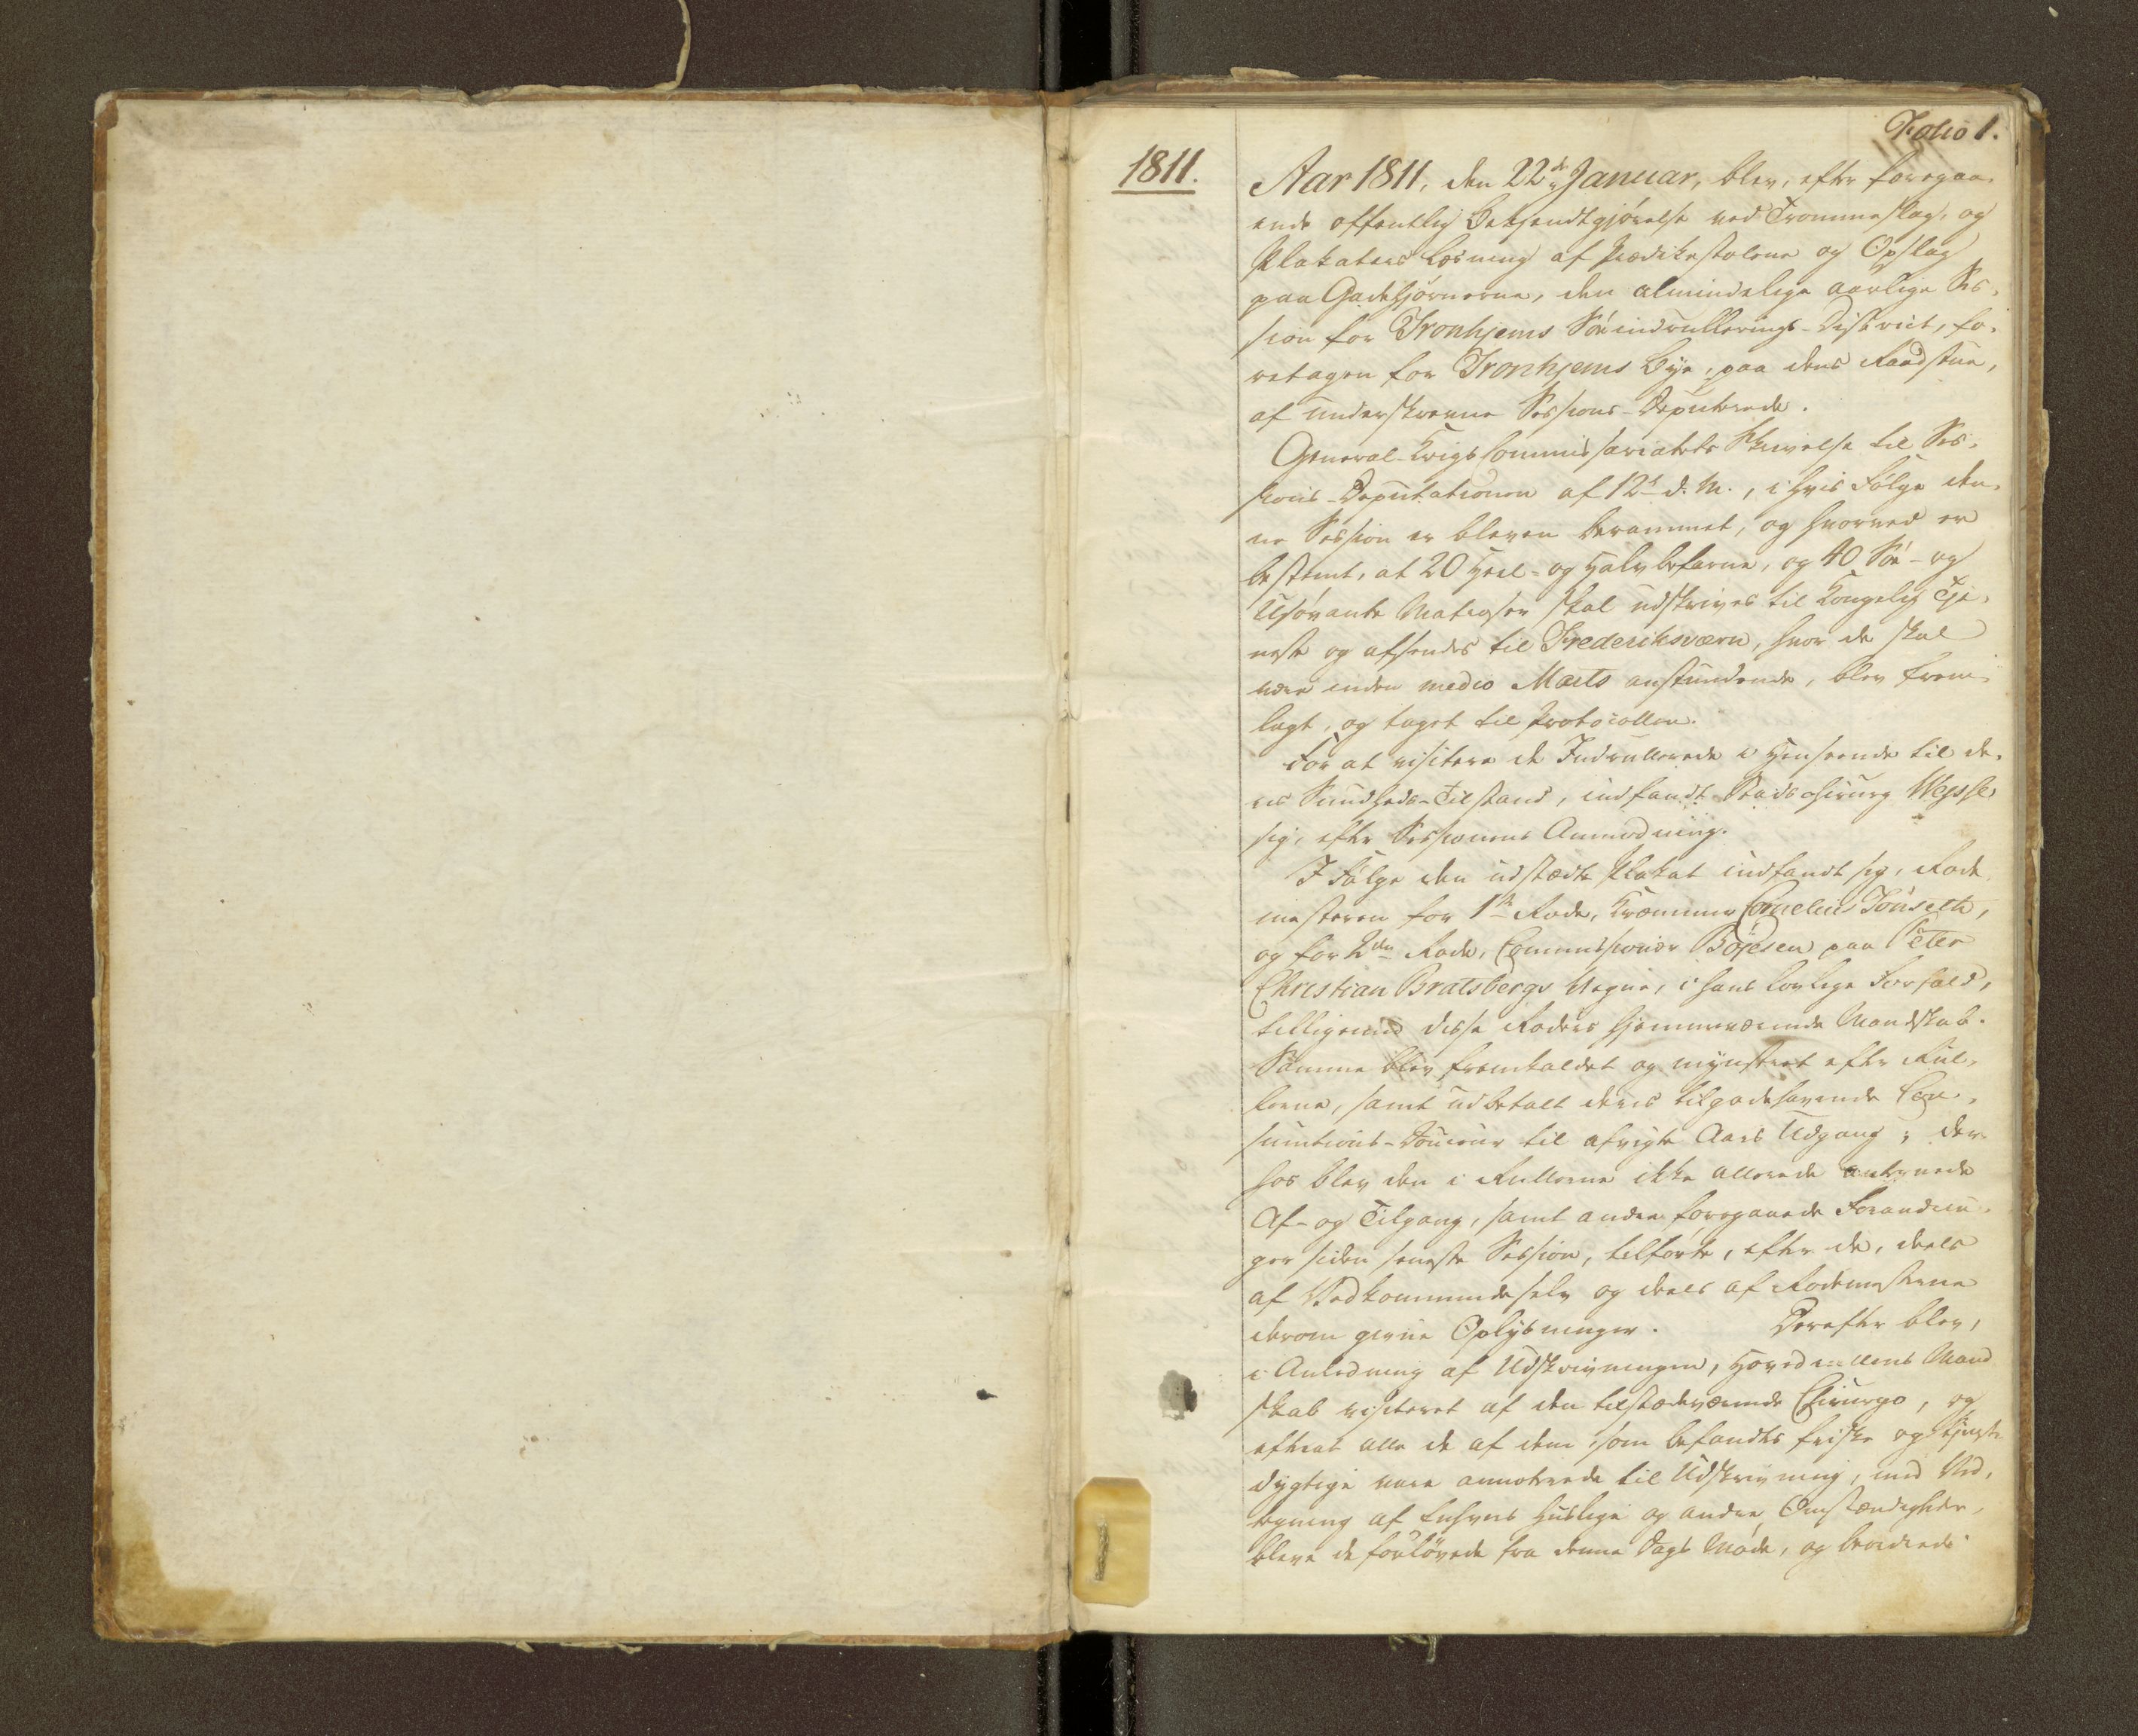 Folio 1.
1811.
Aar 1811, den 22de Januar, blev, efter foregaa-
ende offentlig Bekjendtgjørelse ved Trommeslag, og
Plakaters Læsning af Prædikestolene og Opslag
paa Gadehjørnerne, den almindelige aarlige Ses-
sion for Tronhjems Søeindrullerings-District, fo-
retagen for Tronhjems Bye, paa dens Raadstue,
af underskrevne Sessions-Deputerede.
General-Krigs Commissariatets Skrivelse til Ses-
sions-Deputationen af 12te d. M., i hvis Følge den-
ne Session er bleven berammet, og hvorved er
bestemt, at 20 Heel- og Halvbefarne, og 40 Søe- og
Usøvante Matroser skal udskrives til Kongelig Tje-
neste og afsendes til Frederiksværn, hvor de skal
være inden medio Marts anstundende, blev frem-
lagt, og taget til Protocollen.
For at visitere de Indrullerede i Henseende til de-
res Sundheds-Tilstand, indfandt Stadschirurg Weysse
sig, efter Sessionens Anmodning.
I Følge den udstædte Plakat indfandt sig, Rode-
mesteren for 1ste Rode, Kræmmer Cornelius Jonseth,
og for 2den Rode, Commissionær Böjesen paa Peter
Christian Bratsbergs Vegne, i hans lovlige Forfald,
tilligemed disse Roders hjemmeværende Mandskab.
Samme blev fremkaldet og mynstret efter Rul-
lerne, samt udbetalt deres tilgodehavende Con-
sumtions-Douceur til afvigte Aars Udgang; der-
hos blev den i Rullerne ikke allerede antegnede
Af- og Tilgang, samt andre foregaaede Forandrin-
ger siden seneste Session, tilførte, efter de, deels
af Vedkommende selv og deels af Rodemesterne
derom givne Oplysninger. Derefter blev,
i Anledning af Udskrivningen, Hovedrullens Mand-
skab visiteret af den tilstædeværende Chirurgo, og
efterat alle de af dem, som befandtes friske og tjenst-
dygtige vare annoterede til Udskrivning, med Ved-
tegning af Enhvers huslige og andre Omstændigheder,
bleve de forløvede fra denne Dags Møde, og beordrede